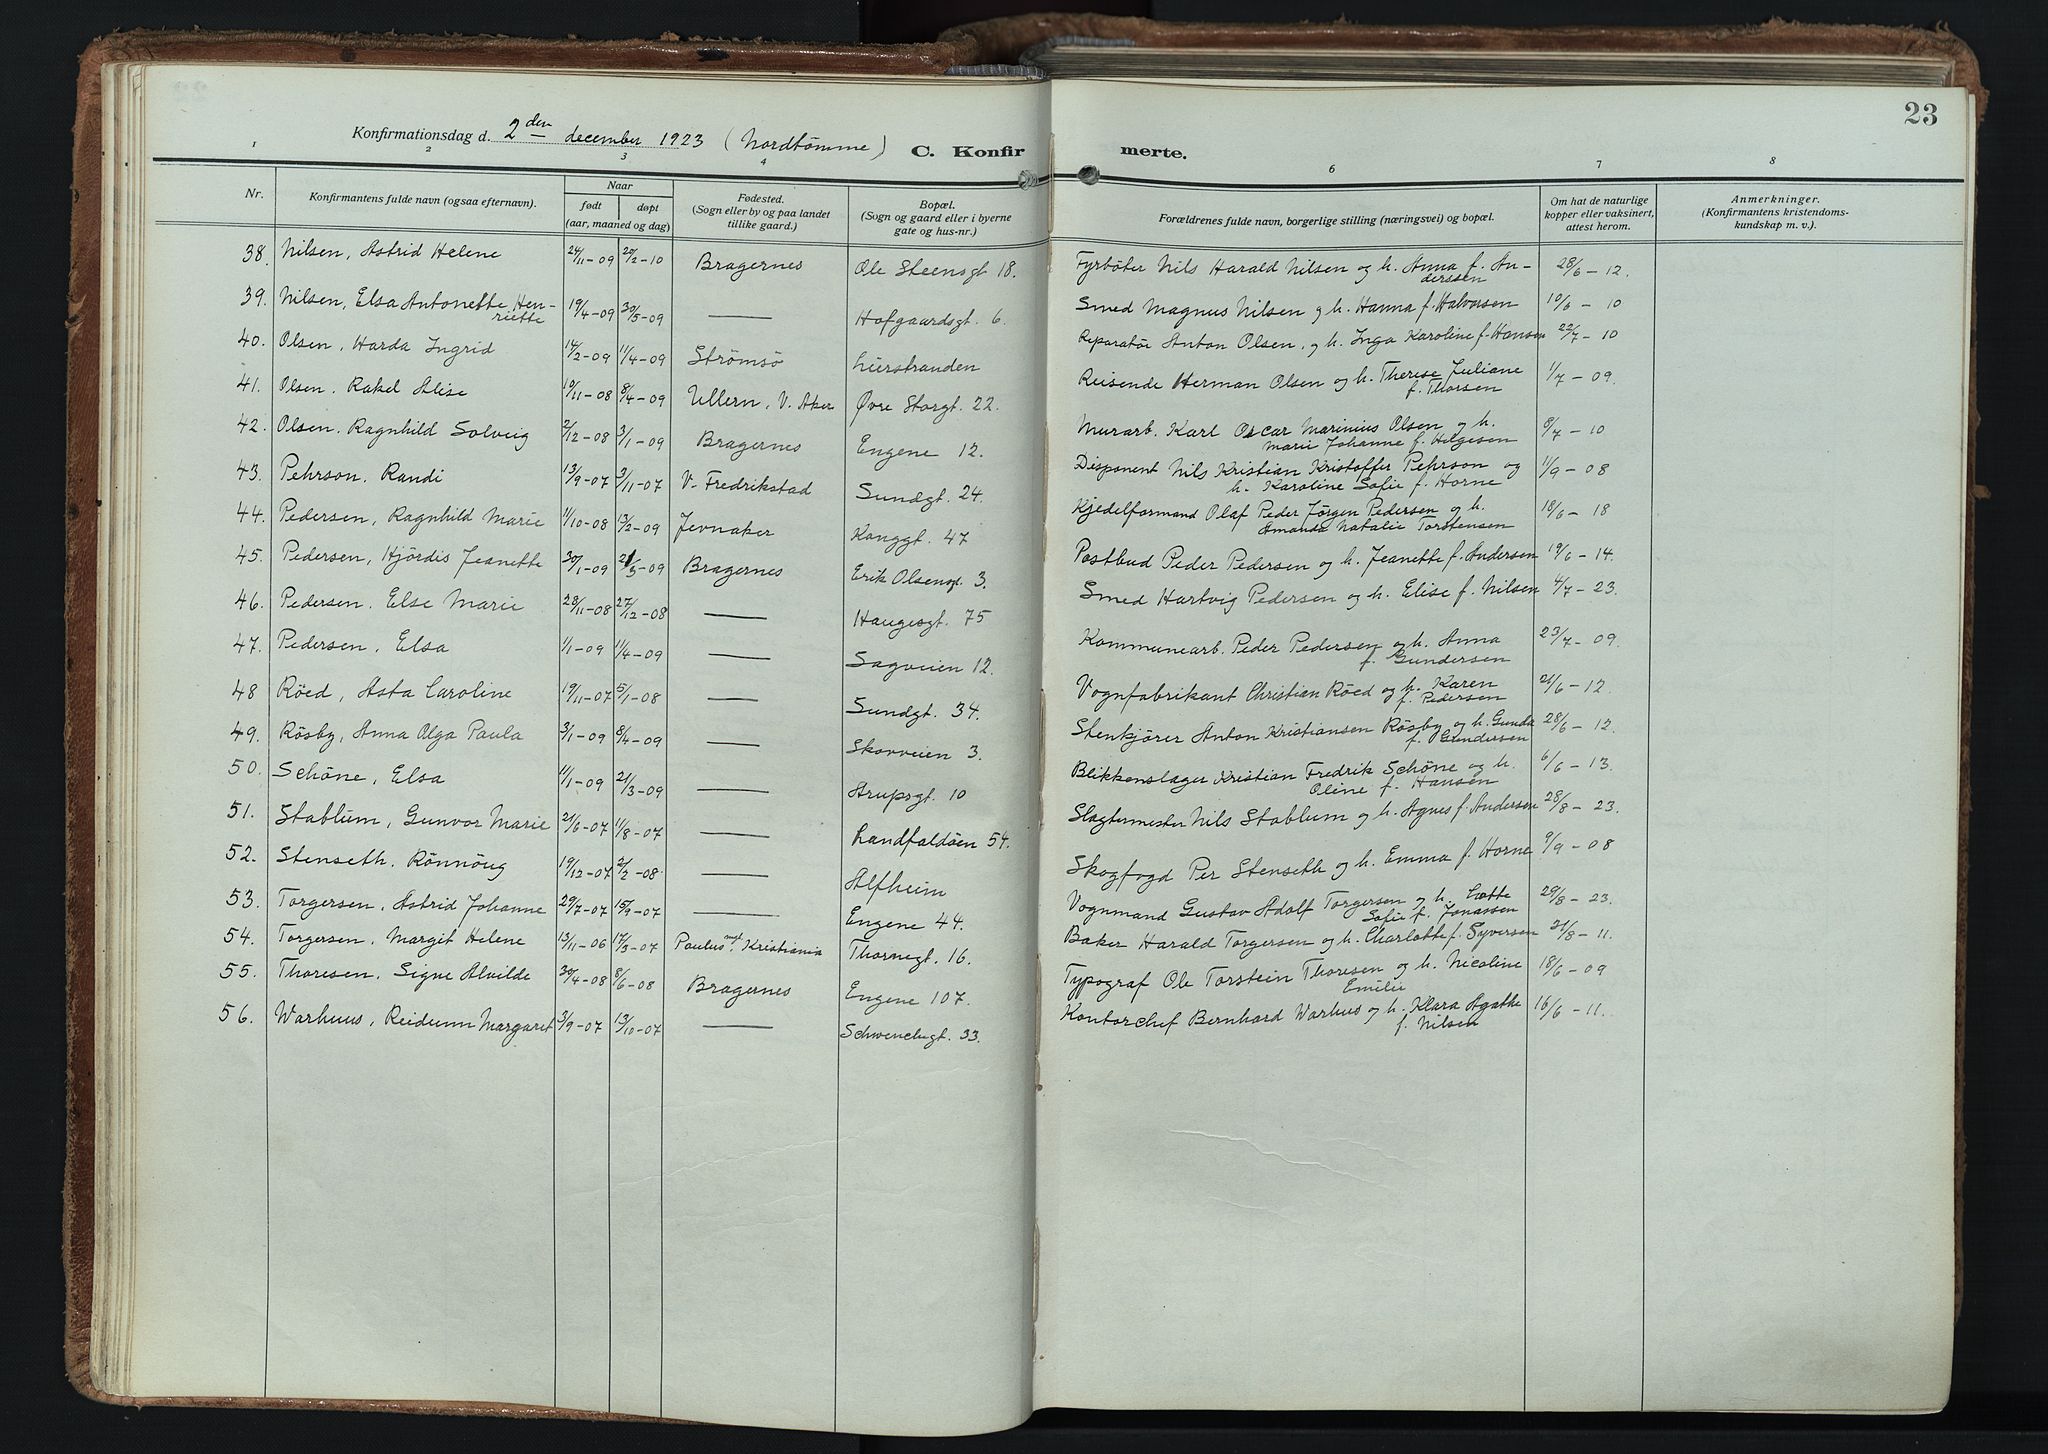 23
Konfirmationsdag d. 2den december 1923 (Nordtømme) C. Konfirmerte.
1 2 3 4 6 7 8
Nr. Konfirmantens fulde navn (ogsaa efternavn). Naar født døpt (aar, maaned og dag) Fødested. (Sogn eller by og paa landet tillike gaard.) Bopæl. (Sogn og gaard eller i byerne gate og hus-nr.) Forældrenes fulde navn, borgerlige stilling (næringsvei) og bopæl. Om hat de naturlige kopper eller vaksinert, attest herom. Anmerkninger. (Konfirmantens kristendomskundskap m. v.).
38. Nilsen, Astrid Helene 24/11-09 20/2-10 Bragernes Ole Steensgt 18. Fyrbøter Nils Harald Nilsen og h. Anna f. Anderssen 28/6-12.
39. Nilsen, Elsa Antonette Henriette 19/4-09 30/5-09 — Hofgaardsgt. 6. Smed Magnus Nilsen og h. Hanna f. Halvorsen 10/6-10
40. Olsen, Harda Ingrid 14/2-09 11/4-09 Strömsö Lierstranden Reparatör Anton Olsen, og h. Inga Karoline f. Hansen 22/7-10
41. Olsen, Rakel Alise 10/11-08 8/4-09 Ullern, V. Aker Øvre Storgt. 22. Reisende Herman Olsen og h. Therese Juliane f. Thorsen 1/7-09.
42. Olsen, Ragnhild Solveig 2/12-08 3/1-09 Bragernes Engene 12. Murarb. Karl Oscar Marinius Olsen og h. Marie Johanne f. Helgesen 8/7-10
43. Pehrson, Randi 13/9-07 3/11-07 V. Fredrikstad Sundgt. 24. Disponent Nils Kristian Kristoffer Pehrson og h. Karoline Sofie f. Horne 11/9-08
44. Pedersen, Ragnhild Marie 11/10-08 13/2-09 Jevnaker Konggt. 47 Kjedelformand Olaf Peder Jørgen Pedersen og h. Amanda Natalie Torstensen 18/6-18
45. Pedersen, Hjördis Jeanette 30/1-09 21/5-09 Bragernes Erik Olsensgt. 3. Postbud Peder Pedersen og h. Jeanette f. Andersen 19/6-14.
46. Pedersen, Else Marie 28/11-08 27/12-08 — Haugesgt. 75 Smed Hartvig Pedersen og h. Elise f. Nilsen 4/7-23.
47. Pedersen, Elsa 1/1-09 11/4-09 — Sagveien 12. Kommunearb. Peder Pedersen og h. Anna f. Gundersen 23/7-09.
48 Röed, Asta Caroline 19/11-07 5/1-08 — Sundgt. 34. Vognfabrikant Christian Röed og h. Karen f. Pedersen 21/6-12.
49. Rösby, Anna Olga Paula 3/1-09 8/4-09 — Skovveien 3. Stenkjører Anton Kristiansen Rösby og h. Gunda f. Gundersen 28/6-12.
50. Schöne, Elsa 11/1-09 21/3-09 — Arupsgt. 10 Blikkenslager Kristian Fredrik Schöne og h. Oline f. Hansen 6/6-13.
51. Stablum, Gunvor Marie 21/6-07 11/8-07 — Landfaldöen 54. Slagtermester Nils Stablum og h. Agnes f. Andersen 28/8-23.
52. Stenseth, Rönnöug 19/12-07 2/2-08. — Alfheim Skogfogd Per Stenseth og h. Emma f. Horne 9/9-08
53. Torgersen, Astrid Johanne 29/7-07 15/9-07 — Engene 44. Vognmand Gustav Adolf Torgersen og h. Lætte Sofie f. Jonassen 29/8-23.
54. Torgersen, Margit Helene 13/11-06 17/3-07 Paulus mgt. Kristiania Thornegt. 16. Baker Harald Torgersen og h. Charlotte f. Syversen 31/8-11.
55. Thoresen, Signe Alvilde 30/4-08 8/6-08 Bragernes Engene 107. Typograf Ole Torstein Thoresen og h. Nicoline Emilie 18/6-09
56. Warhuus, Reidunn Margaret 3/9-07 13/10-07 — Schwenckegt. 33. Kontorchef Bernhard Warhus og h. Klara Agathe f. Nilsen 16/6-11.